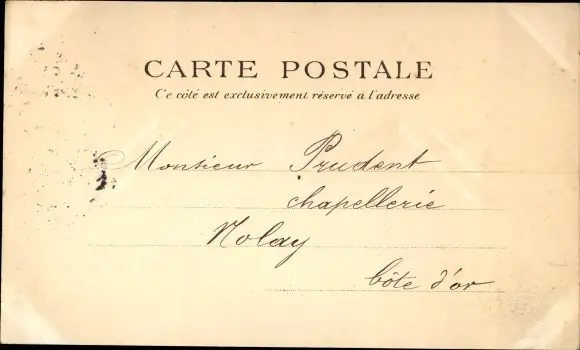 CARTE POSTALE
Ce côté est exclusivement réservé à l'adresse
Monsieur Prudent
chapellerie
Nolay
Côte d'or